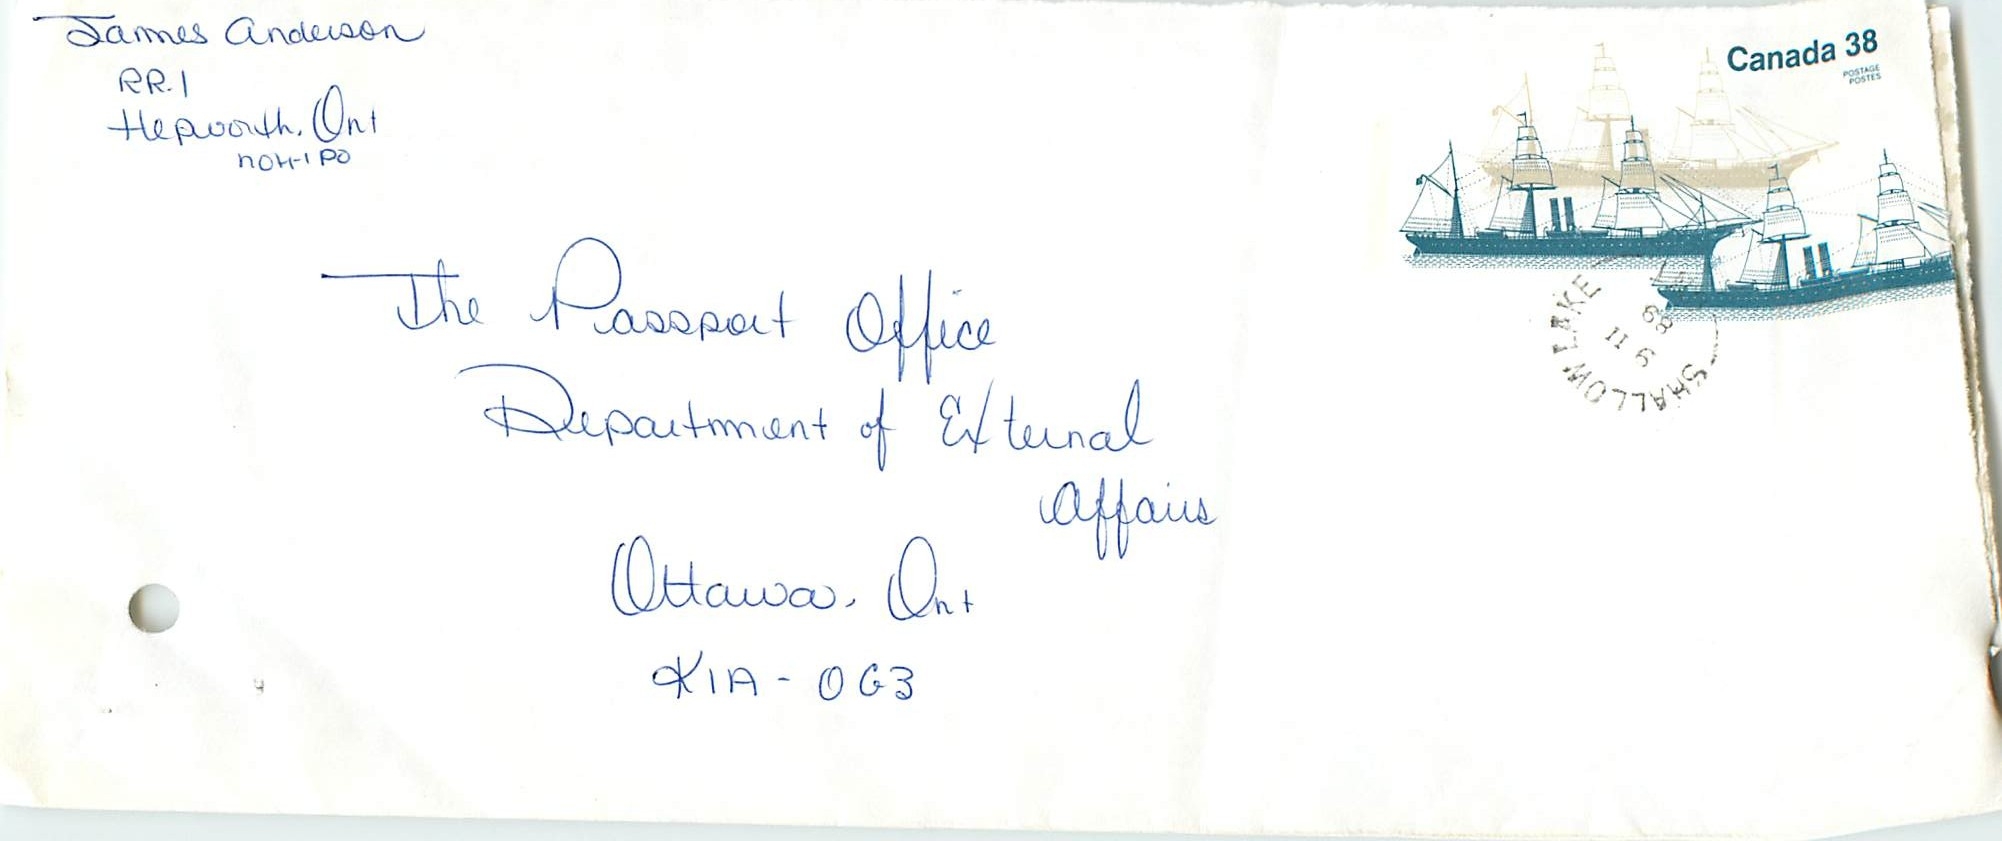 James Anderson
RR.1
Hepworth, Ont
N0H-1P0
Canada 38
POSTAGE
POSTES
SHALLOW LAKE
9 II
89
The Passport Office
Department of External
Affairs
Ottawa, Ont
K1A-0G3